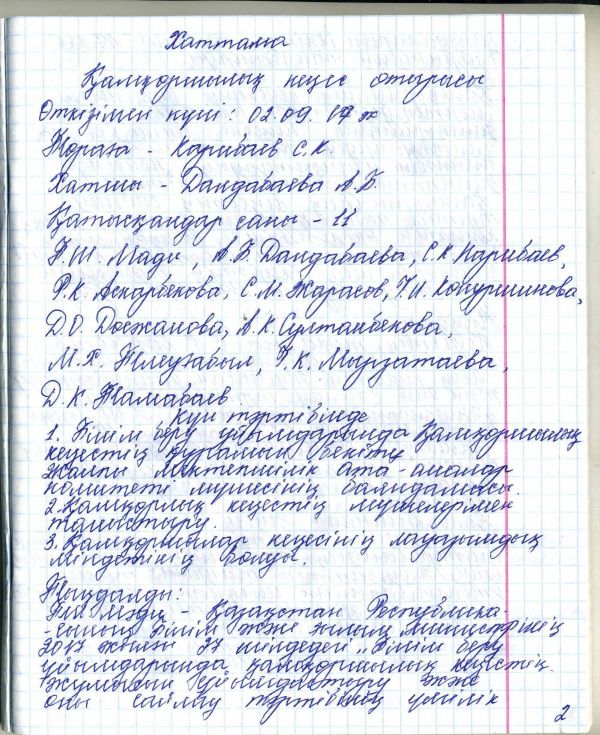 Хаттама
Қамқоршылық кеңес отырысы
Өткізілген күні: 02.09.17 ж
Төраға - Карибаев С.К.
Хатшы - Далдабаева А.Б.
Қатысқандар саны - 11
Г.Ш. Мади, А.Б. Далдабаева, С.К. Карибаев,
Р.К. Аскарбекова, С.М. Жарасов, Г.И. Конуршинова,
Д.О. Досжанова, А.К. Султанбекова,
М.Х. Тілеужабыл, Г.К. Мырзатаева,
Д.К. Тамабаев.
Күн тәртібінде
1. Білім беру ұйымдарында Қамқоршылық
кеңестің құрамын бекіту
Жалпы мектепшілік ата-аналар
комитеті мүшесінің баяндамасы.
2. Қамқорлық кеңестің мүшелерімен
таныстыру.
3. Қамқоршылар кеңесінің лауазымдық
міндетінің болуы.
Тыңдалды:
Г.Ш. Мәди - Қазақстан Республика-
-сының Білім және ғылым министрінің
2017 жылғы 27 шілдедегі „Білім беру
ұйымдарында қамқоршылық кеңестің
жұмысын ұйымдастыру және
оны сайлау тәртібінің үлгілік
2